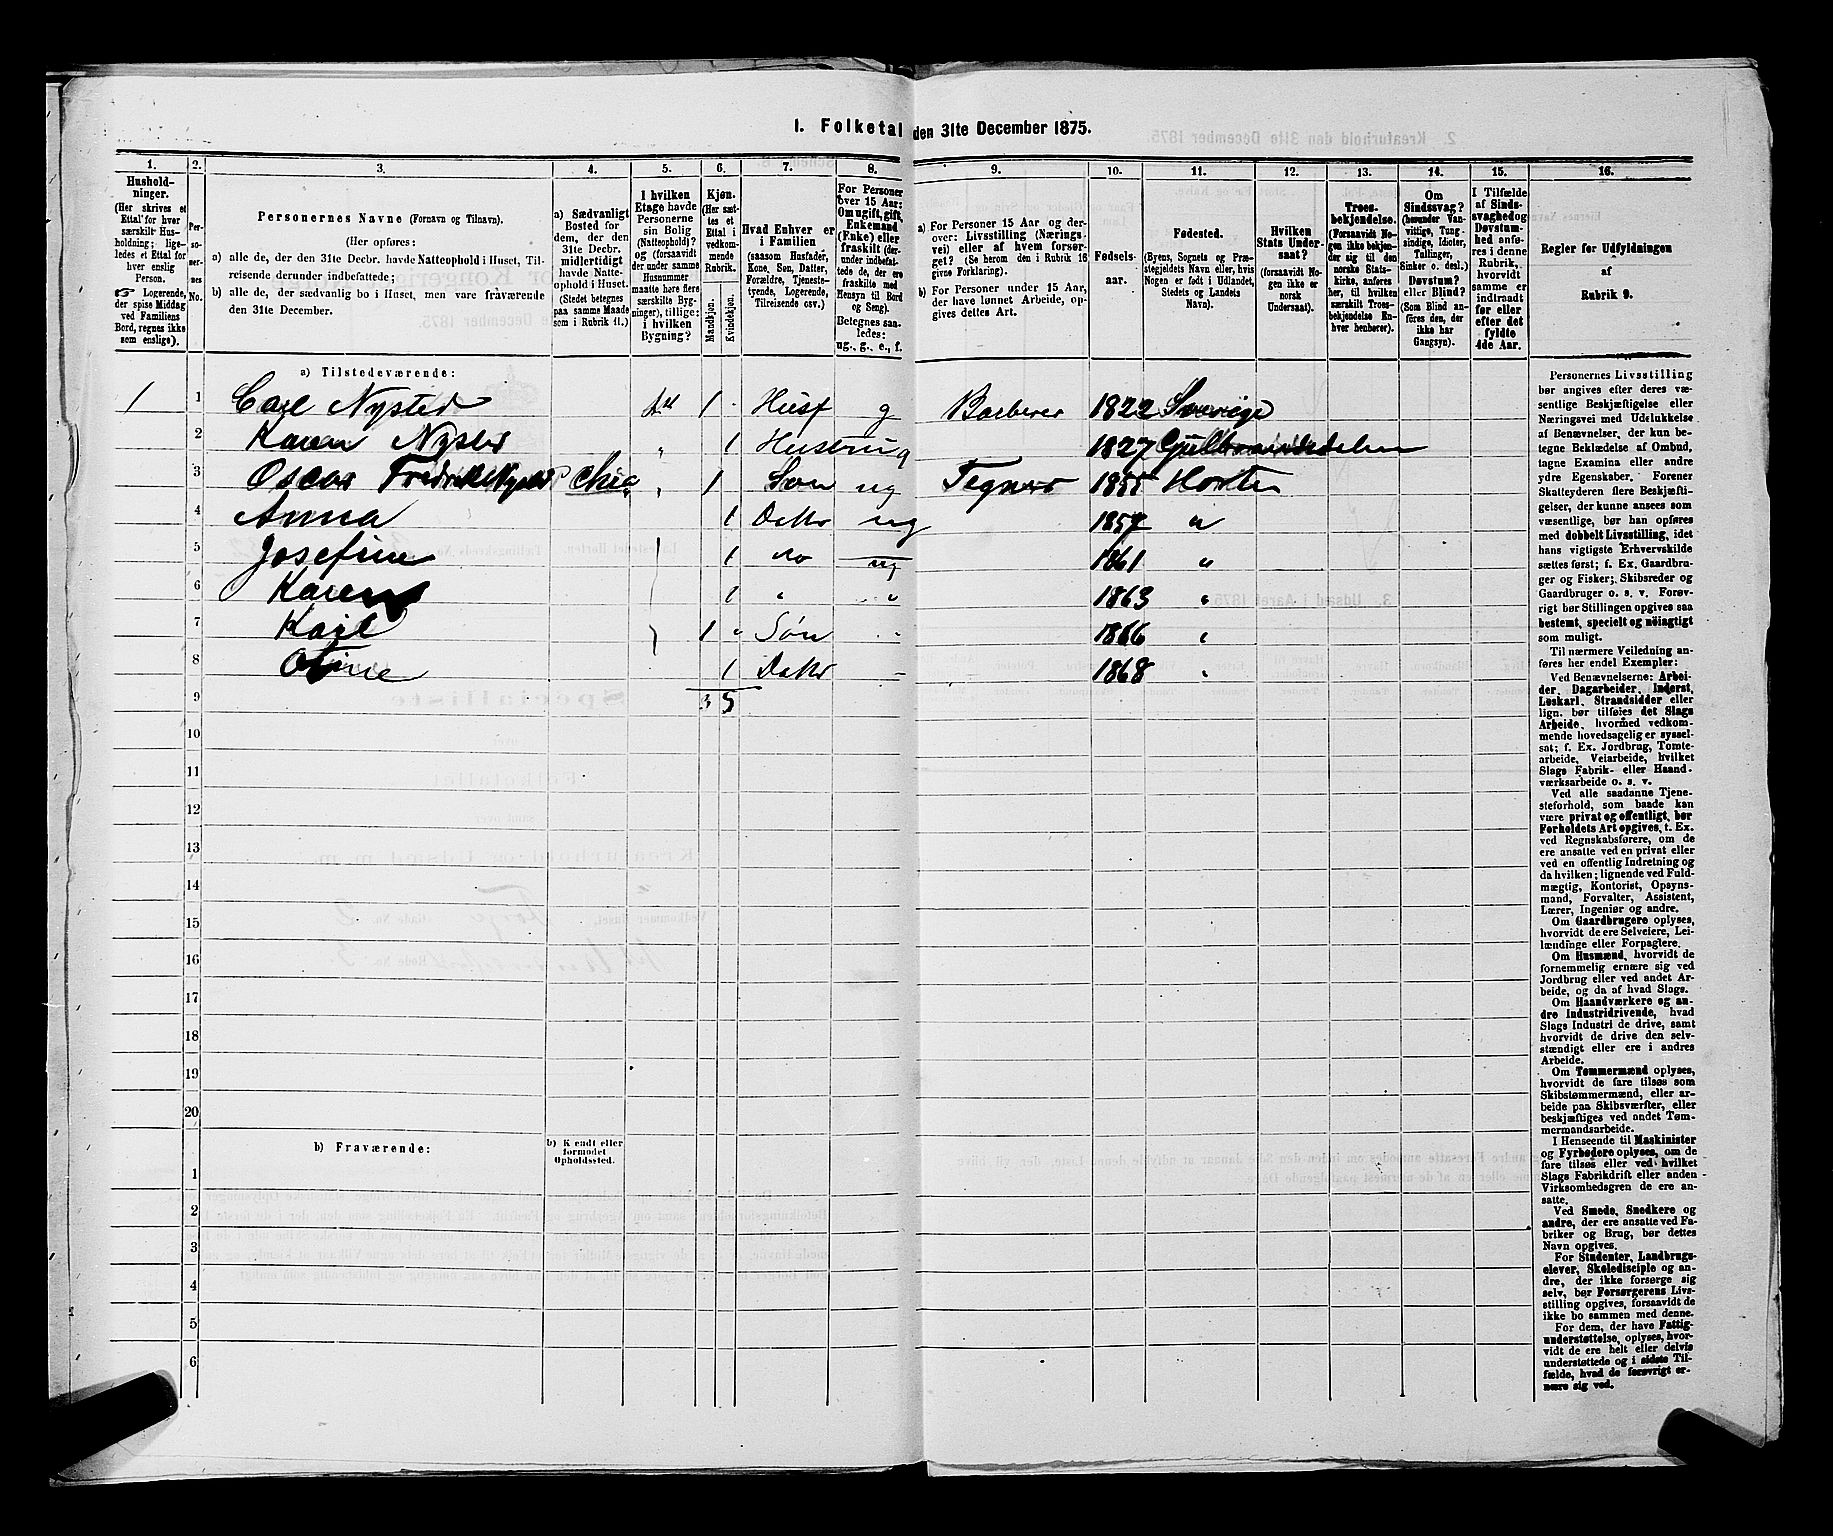 1. Folketal den 31te December 1875.
1. 2. 3. 4. 5. 6. 7. 8. 9. 10. 11. 12. 13. 14. 15. 16.
Hushold-
ninger.
(Her skrives et
Ettal for hver
særskilt Hus-
holdning; lige-
ledes et Ettal for
hver enslig
Person.
☞ Logerende,
der spise Middag
ved Familiens
Bord, regnes ikke
som enslige).
Per-
so-
ner-
nes
No.
Personernes Navne (Fornavn og Tilnavn).
(Her opføres:
a) alle de, der den 31te Decbr. havde Natteophold i Huset, Til-
reisende derunder indbefattede;
b) alle de, der sædvanlig bo i Huset, men vare fraværende
den 31te December.
a) Sædvanligt
Bosted for
dem, der den
31te Decbr.
midlertidigt
havde Natte-
ophold i Huset.
(Stedet betegnes
paa samme Maade
som i Rubrik 11.)
I hvilken
Etage havde
Personerne
sin Bolig
(Natteophold)?
og (forsaavidt
der under samme
Husnummer
maatte høre flere
særskilte Byg-
ninger), tillige:
i hvilken
Bygning?
Kjøn.
(Her sæt-
tes et
Ettal i
vedkom-
mende
Rubrik.
Mandkjøn.
Kvindekjøn.
Hvad Enhver er
i Familien
(saasom Husfader,
Kone, Søn, Datter,
Forældre, Tjeneste-
tyende, Logerende,
Tilreisende osv.)
For Personer
over 15 Aar:
Om ugift, gift,
Enkemand
(Enke) eller
fraskilt (der-
under indbefat-
tede de, der ere
fraskilte med
Hensyn til Bord
og Seng).
Betegnes saa-
ledes:
ug., g., e., f.
a) For Personer 15 Aar og der-
over: Livsstilling (Nærings-
vei) eller af hvem forsør-
get? (Se herom den i Rubrik 16
givne Forklaring).
b) For Personer under 15 Aar,
der have lønnet Arbeide, op-
gives dettes Art.
Fødsels-
aar.
Fødested.
(Byens, Sognets og Præ-
stegjeldets Navn eller, hvis
Nogen er født i Udlandet,
Stedets og Landets
Navn).
Hvilken
Stats Under-
saat?
(forsaavidt No-
gen ikke er
norsk
Undersaat).
Troes-
bekjendelse.
(Forsaavidt No-
gen ikke bekjen-
der sig til den
norske Stats-
kirke, anføres
her, til hvilken
særskilt Troes-
bekjendelse En-
hver henhører).
Om
Sindssvag?
(herunder Van-
vittige, Tung-
sindige, Idioter,
Tullinger,
Sinker o. desl.)
Døvstum?
eller Blind?
(Som Blind an-
føres den, der
ikke har
Gangsyn).
I Tilfælde
af Sinds-
svaghed og
Døvstum-
hed anfø-
res i denne
Rubrik,
hvorvidt
samme er
indtraadt
før eller
efter det
fyldte
4de Aar.
Regler for Udfyldningen
af
Rubrik 9.
a) Tilstedeværende:
1 1 Carl Nysted 1 Husf g Barberer 1822 Sverige
2 Karen Nysted 1 Hustru g 1827 Gulbrandsdalen
3 Oscar Fredrik Nysted Chra 1 Søn ug Tegner 1855 Horten
4 Anna 1 Datter ug 1857 "
5 Josefine 1 do ug 1861 "
6 Karen 1 " " 1863 "
7 Karl 1 " Søn " 1866 "
8 Otine 1 Datter " 1868 "
9 3 5
10
11
12
13
14
15
16
17
18
19
20
b) Fraværende:
b) Kjendt eller
formodet
Opholdssted.
1
2
3
4
5
6
Personernes Livsstilling
bør angives efter deres væ-
sentlige Beskjæftigelse eller
Næringsvei med Udelukkelse
af Benævnelser, der kun be-
tegne Beklædelse af Ombud,
tagne Examina eller andre
ydre Egenskaber. Forener
Skatteyderen flere Beskjæfti-
gelser, der kunne ansees som
væsentlige, bør han opføres
med dobbelt Livsstilling, idet
hans vigtigste Erhvervskilde
sættes først; f. Ex. Gaardbru-
ger og Fisker; Skibsreder og
Gaardbruger o. s. v. Forøv-
rigt bør Stillingen opgives saa
bestemt, specielt og nøiagtigt
som muligt.
Til nærmere Veiledning an-
føres her endel Exempler:
Ved Benævnelserne: Arbei-
der, Dagarbeider, Inderst,
Løskarl, Strandsidder eller
lign. bør tilføies det Slags
Arbeide, hvormed vedkom-
mende hovedsagelig er syssel-
sat; f. Ex. Jordbrug, Tomte-
arbeide, Veiarbeide, hvilket
Slags Fabrik- eller Haand-
værksarbeide o. s. v.
Ved alle saadanne Tjene-
steforhold, som baade kan
være privat og offentligt, bør
Forholdets Art opgives, t. Ex.
ved Regnskabsførere, om de
ere ansatte ved en privat eller
ved en offentlig Indretning og
da hvilken; lignende ved Fuld-
mægtig, Kontorist, Opsyns-
mand, Forvalter, Assistent,
Lærer, Ingeniør og andre.
Om Gaardbrugere oplyses,
hvorvidt de ere Selveiere, Lei-
lændinge eller Forpagtere.
Om Husmænd, hvorvidt de
fornemmelig ernære sig ved
Jordbrug eller ved andet Ar-
beide, og da af hvad Slags.
Om Haandværkere og an-
dre Industridrivende, hvad
Slags Industri de drive, samt
hvorvidt de drive den selv-
stændigt eller ere i andres
Arbeide.
Om Tømmermænd oplyses,
hvorvidt de fare tilsøs som
Skibstømmermænd, eller ar-
beide paa Skibsværfter, eller
beskjæftiges ved andet Tøm-
mermandsarbeide.
I Henseende til Maskinister
og Fyrbødere oplyses, om de
fare tilsøs eller ved hvilket
Slags Fabrikdrift eller anden
Virksomhedsgren de ere an-
satte.
Ved Smede, Snedkere og
andre, der ere ansatte ved Fa-
briker og Brug, bør dettes
Navn opgives.
For Studenter, Landbrugs-
elever, Skoledisciple og an-
dre, der ikke forsørge sig
selv, bør Forsørgerens Livs-
stilling opgives, forsaavidt de
ikke bo sammen med denne.
For dem, der have Fattig-
understøttelse, oplyses, hvor-
vidt de ere helt eller delvis
understøttede og i sidste Til-
fælde, hvad de forøvrigt er-
nære sig ved.